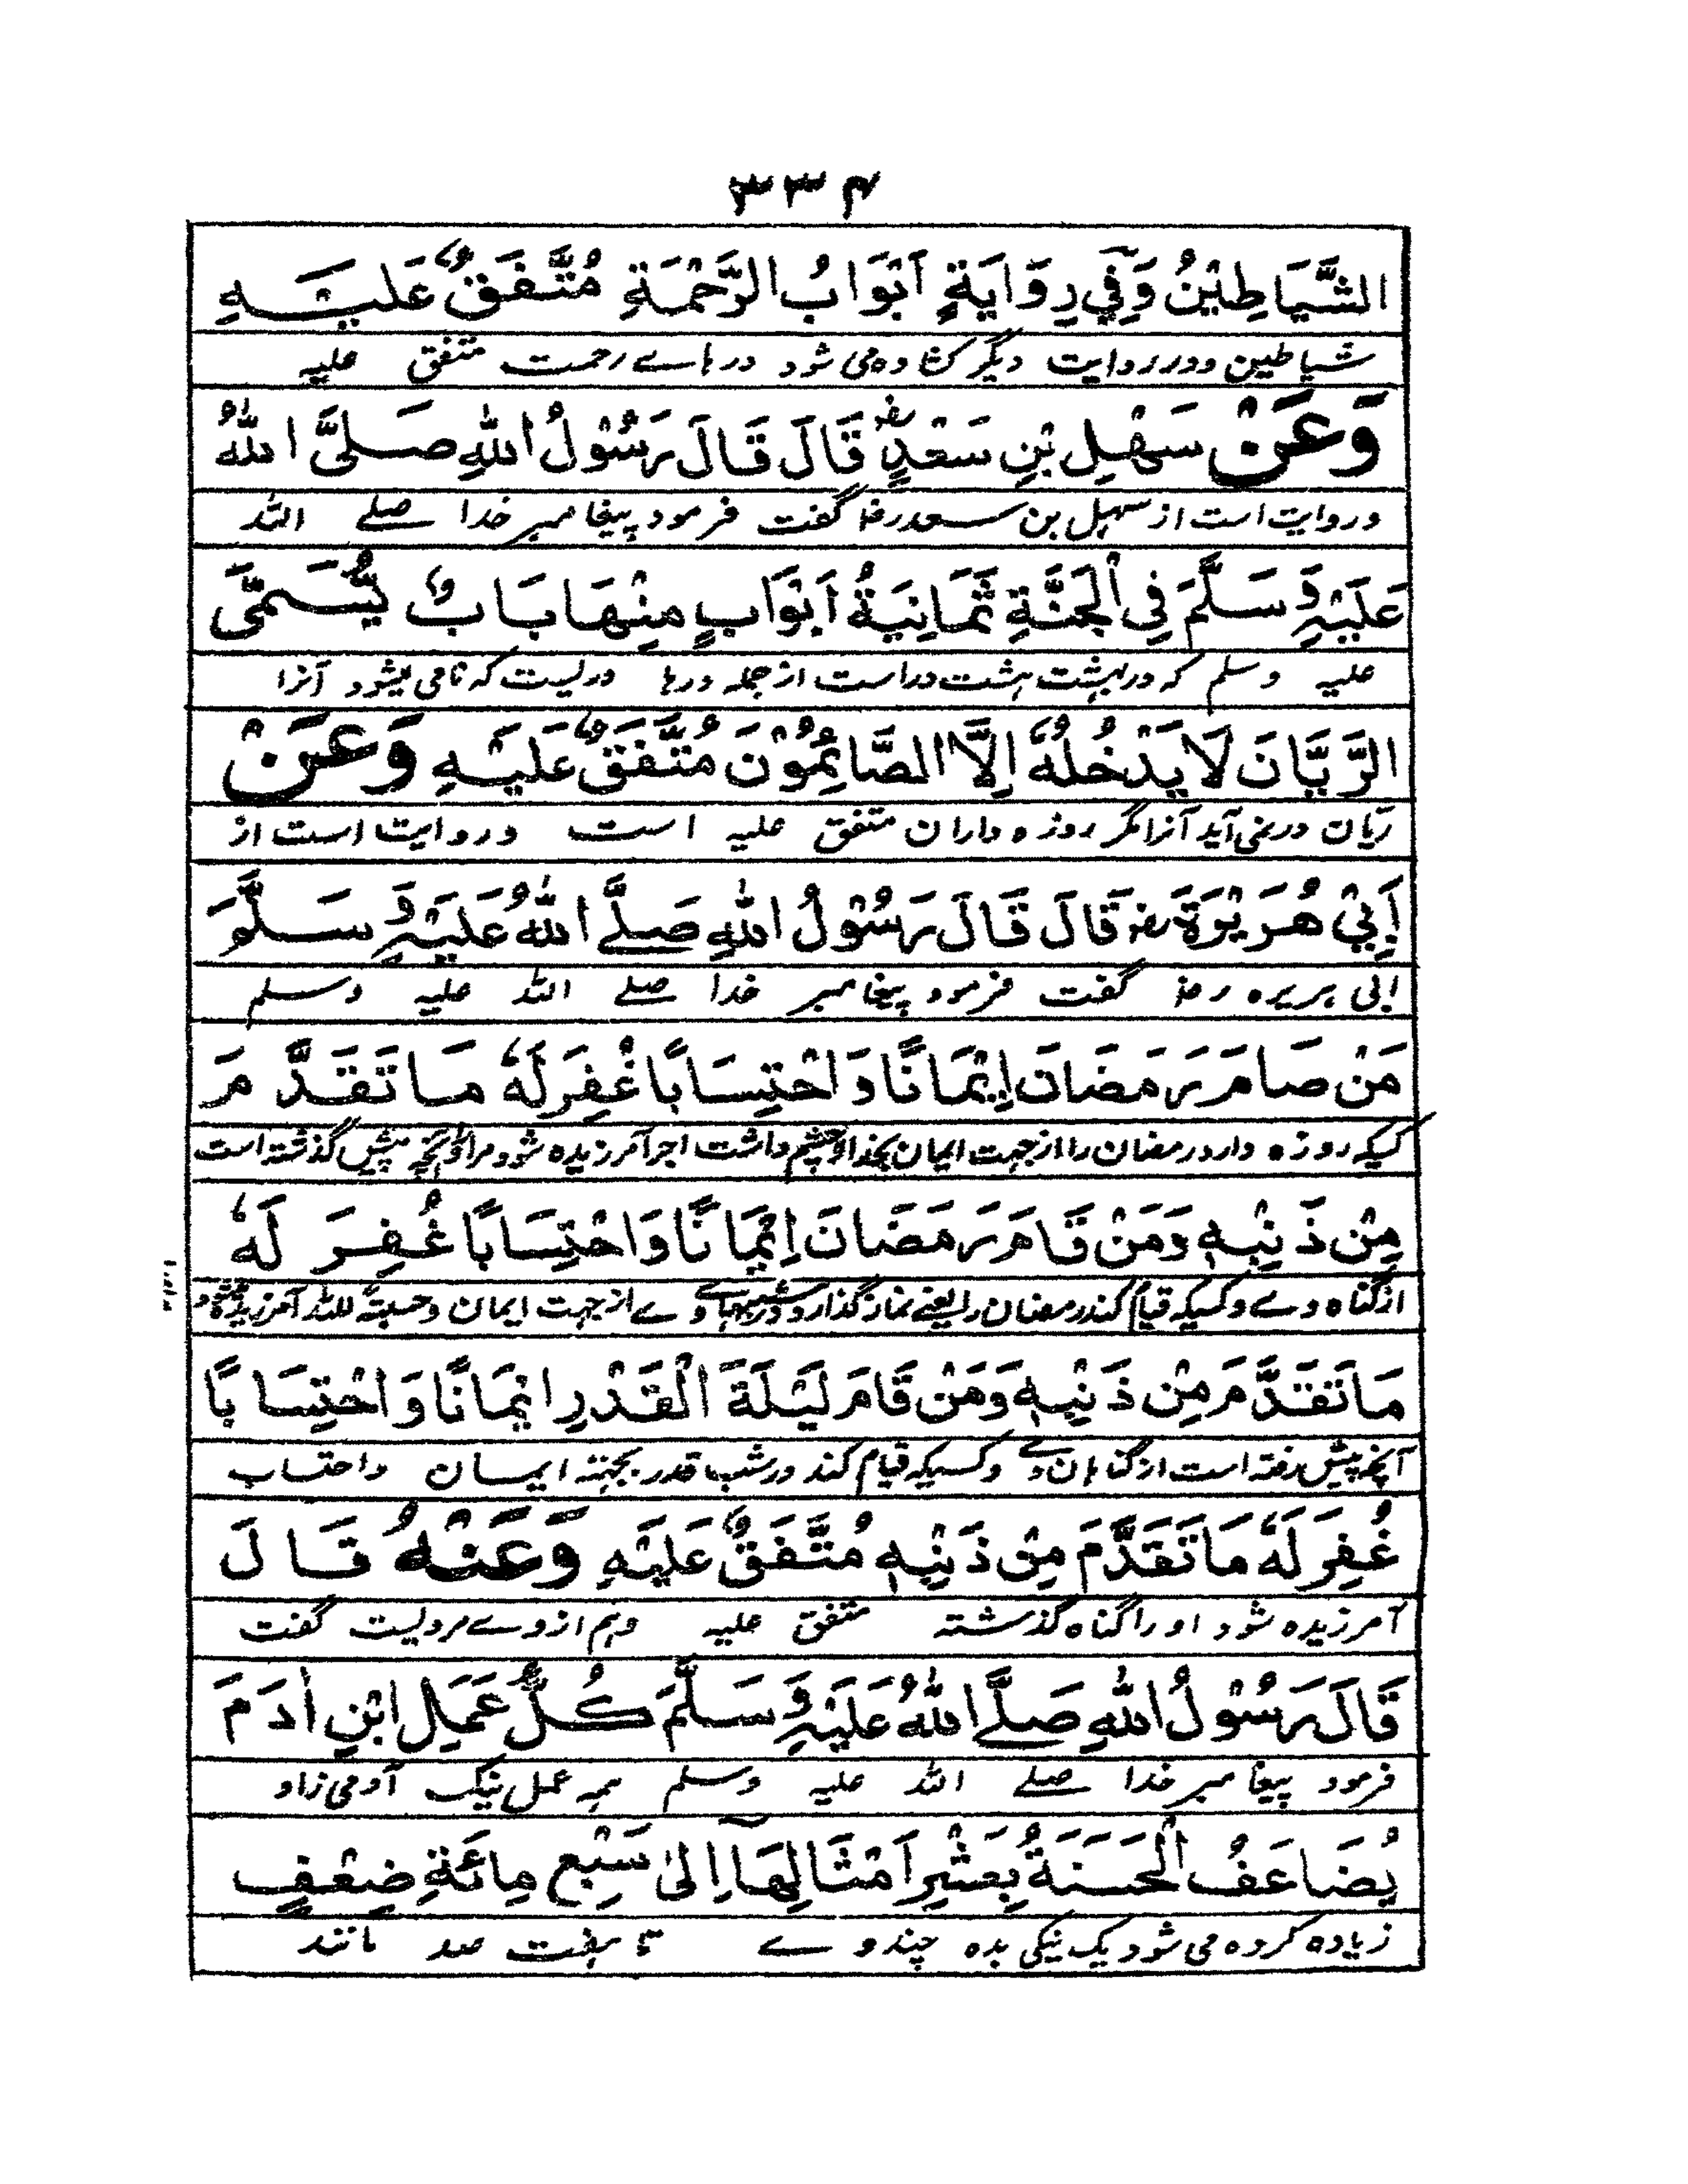 ۳۳۴
الشَّيَاطِيْنُ وَفِيْ رِوَايَةٍ اَبْوَابُ الرَّحْمَةِ مُتَّفَقٌ عَلَيْهِ
شیاطین و در روایت دیگر کشاده می شود درهاے رحمت متفق علیه
وَعَنْ سَهْلِ بْنِ سَعْدٍ رض قَالَ قَالَ رَسُوْلُ اللهِ صَلَّى اللهُ
و روایت است از سهل بن سعد رض گفت فرمود پیغامبر خدا صلے الله
عَلَيْهِ وَسَلَّمَ فِي الْجَنَّةِ ثَمَانِيَةُ اَبْوَابٍ مِنْهَا بَابٌ يُّسَمَّى
علیه وسلم که در بهشت هشت در است از جمله درها دریست که نامی میشود آنرا
الرَّيَّانَ لَا يَدْخُلُهٗ اِلَّا الصَّائِمُوْنَ مُتَّفَقٌ عَلَيْهِ وَعَنْ
ریّان در نمی آید آنرا مگر روزه داران متفق علیه است و روایت است از
اَبِيْ هُرَيْرَةَ رض قَالَ قَالَ رَسُوْلُ اللهِ صَلَّے اللهُ عَلَيْهِ وَسَلَّمَ
ابی هریره رض گفت فرمود پیغامبر خدا صلے الله علیه وسلم
مَنْ صَامَ رَمَضَانَ اِيْمَانًا وَاحْتِسَابًا غُفِرَ لَهٗ مَا تَقَدَّمَ
کسیکه روزه دارد رمضان را از جهت ایمان بخدا و چشم داشت اجر آمرزیده شود مر او را آنچه پیش گذشته است
مِنْ ذَنْبِهٖ وَمَنْ قَامَ رَمَضَانَ اِيْمَانًا وَاحْتِسَابًا غُفِرَ لَهٗ
از گناه وے و کسیکه قیام کند رمضان را یعنے نماز گذارد در شبهاے وے از جهت ایمان و حسبةً لله آمرزیده شود
مَا تَقَدَّمَ مِنْ ذَنْبِهٖ وَمَنْ قَامَ لَيْلَةَ الْقَدْرِ اِيْمَانًا وَاحْتِسَابًا
آنچه پیش رفته است از گناهان وے و کسیکه قیام کند در شب قدر بجهت ایمان و احتساب
غُفِرَ لَهٗ مَا تَقَدَّمَ مِنْ ذَنْبِهٖ مُتَّفَقٌ عَلَيْهِ وَعَنْهُ قَالَ
آمرزیده شود او را گناه گذشته متفق علیه و هم از وے مرویست گفت
قَالَ رَسُوْلُ اللهِ صَلَّے اللهُ عَلَيْهِ وَسَلَّمَ كُلُّ عَمَلِ ابْنِ اٰدَمَ
فرمود پیغامبر خدا صلے الله علیه وسلم همه عمل نیک آدمی زاد
يُضَاعَفُ الْحَسَنَةُ بِعَشْرِ اَمْثَالِهَا اِلٰى سَبْعِ مِائَةِ ضِعْفٍ
زیاده کرده می شود یک نیکی بده چند وے تا هفت صد مانند